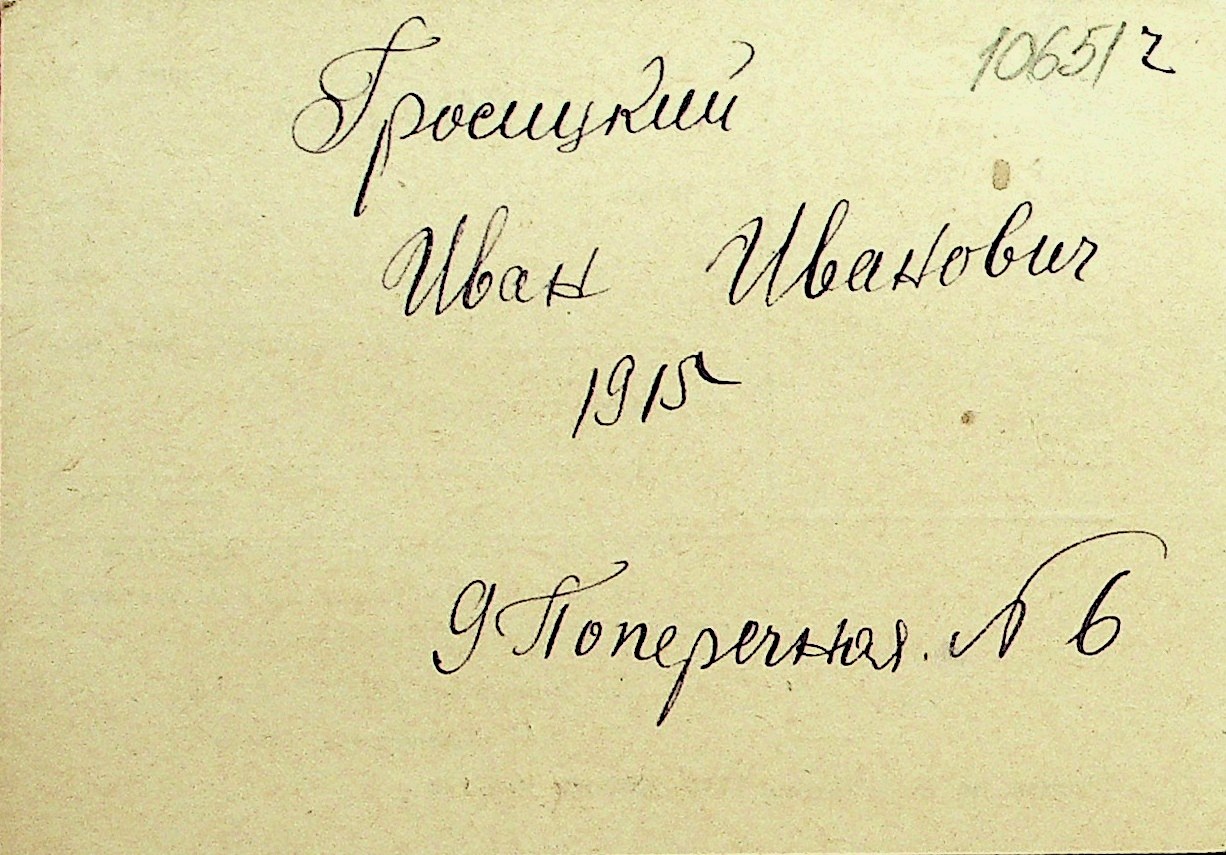 10651 ч
Гросицкий
Иван Иванович
1915
9 Поперечная. N 6